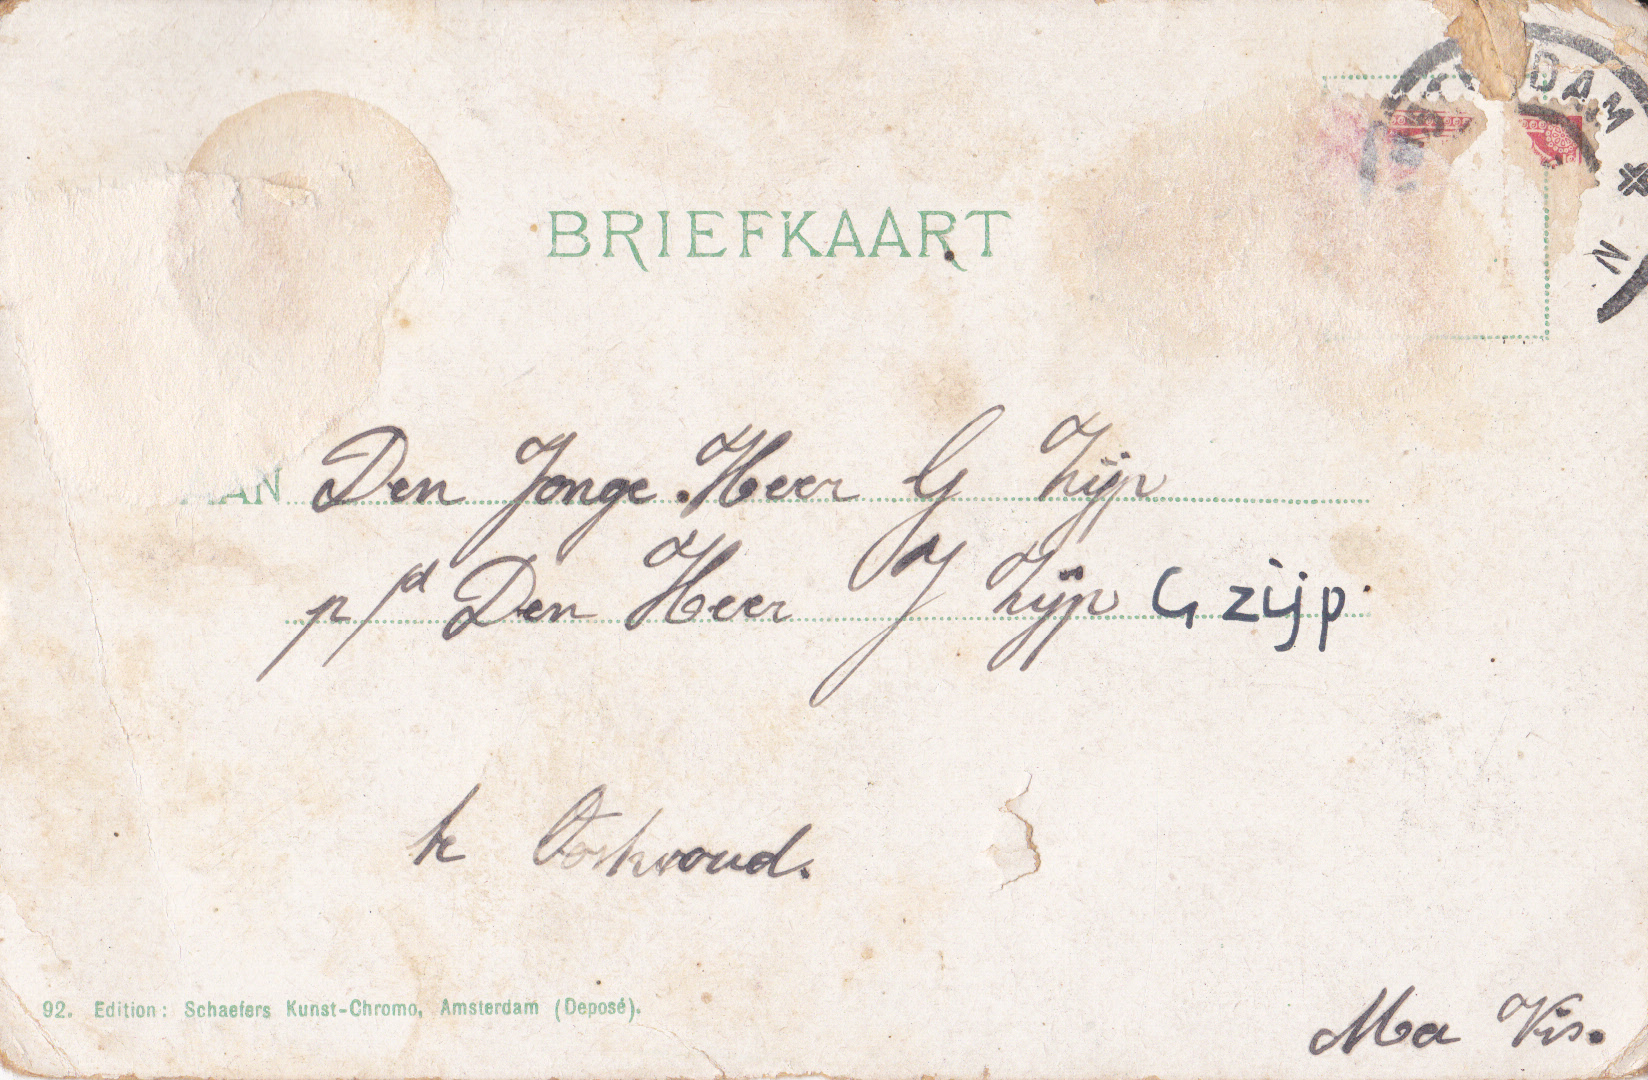 DAM
N
BRIEFKAART
AAN Den Jonge Heer G Zijp
p/d Den Heer J Zijp G zijp
te Oostwoud.
92. Edition: Schaefers Kunst-Chromo, Amsterdam (Deposé).
Ma Vis.